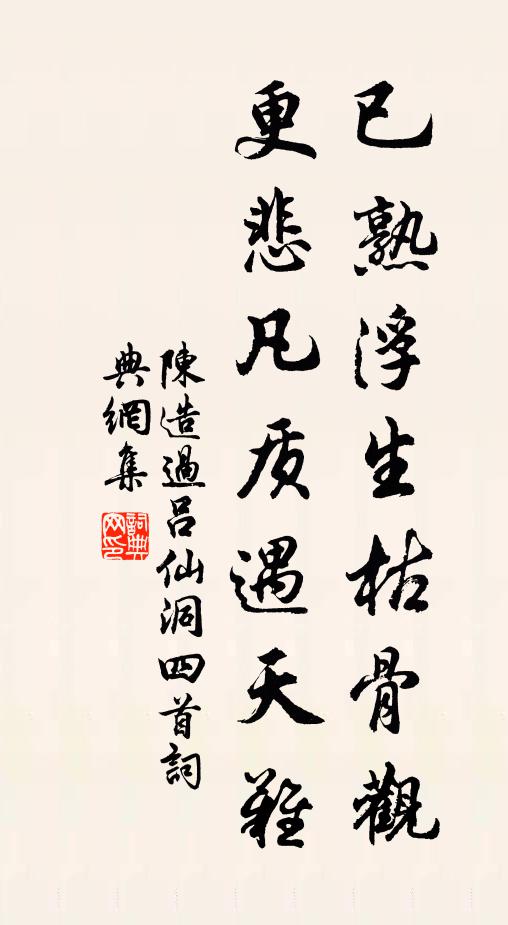 已熟浮生枯骨觀
更悲凡质遇天難
陳造過呂仙洞四首詞
典網集
詞典網印